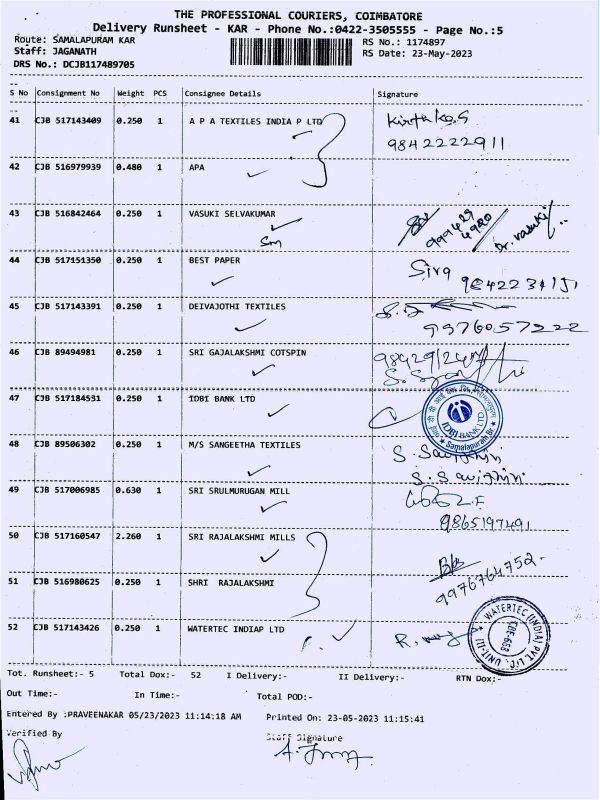 THE PROFESSIONAL COURIERS, COIMBATORE
Delivery Runsheet - KAR - Phone No.:0422-3505555 - Page No.:5
Route: SAMALAPURAM KAR RS No.: 1174897
Staff: JAGANATH RS Date: 23-May-2023
DRS No.: DCJB117489705
S No Consignment No Weight PCS Consignee Details Signature
41 CJB 517143409 0.250 1 A P A TEXTILES INDIA P LTD
9842222911
42 CJB 516979939 0.480 1 APA
43 CJB 516842464 0.250 1 VASUKI SELVAKUMAR
Dr. Vasuki
44 CJB 517151350 0.250 1 BEST PAPER Siva
45 CJB 517143391 0.250 1 DEIVAJOTHI TEXTILES
9976057222
46 CJB 89494981 0.250 1 SRI GAJALAKSHMI COTSPIN
47 CJB 517184531 0.250 1 IDBI BANK LTD
IDBI BANK LTD
Samalapuram Br
48 CJB 89506302 0.250 1 M/S SANGEETHA TEXTILES
49 CJB 517006985 0.630 1 SRI SRULMURUGAN MILL
9865197491
50 CJB 517160547 2.260 1 SRI RAJALAKSHMI MILLS
9976764752
51 CJB 516980625 0.250 1 SHRI RAJALAKSHMI
52 CJB 517143426 0.250 1 WATERTEC INDIAP LTD
WATERTEC (INDIA) PVT. LTD. UNIT-III
Tot. Runsheet:- 5 Total Dox:- 52 I Delivery:- II Delivery:- RTN Dox:-
Out Time:- In Time:- Total POD:-
Entered By :PRAVEENAKAR 05/23/2023 11:14:18 AM Printed On: 23-05-2023 11:15:41
Verified By Staff Signature